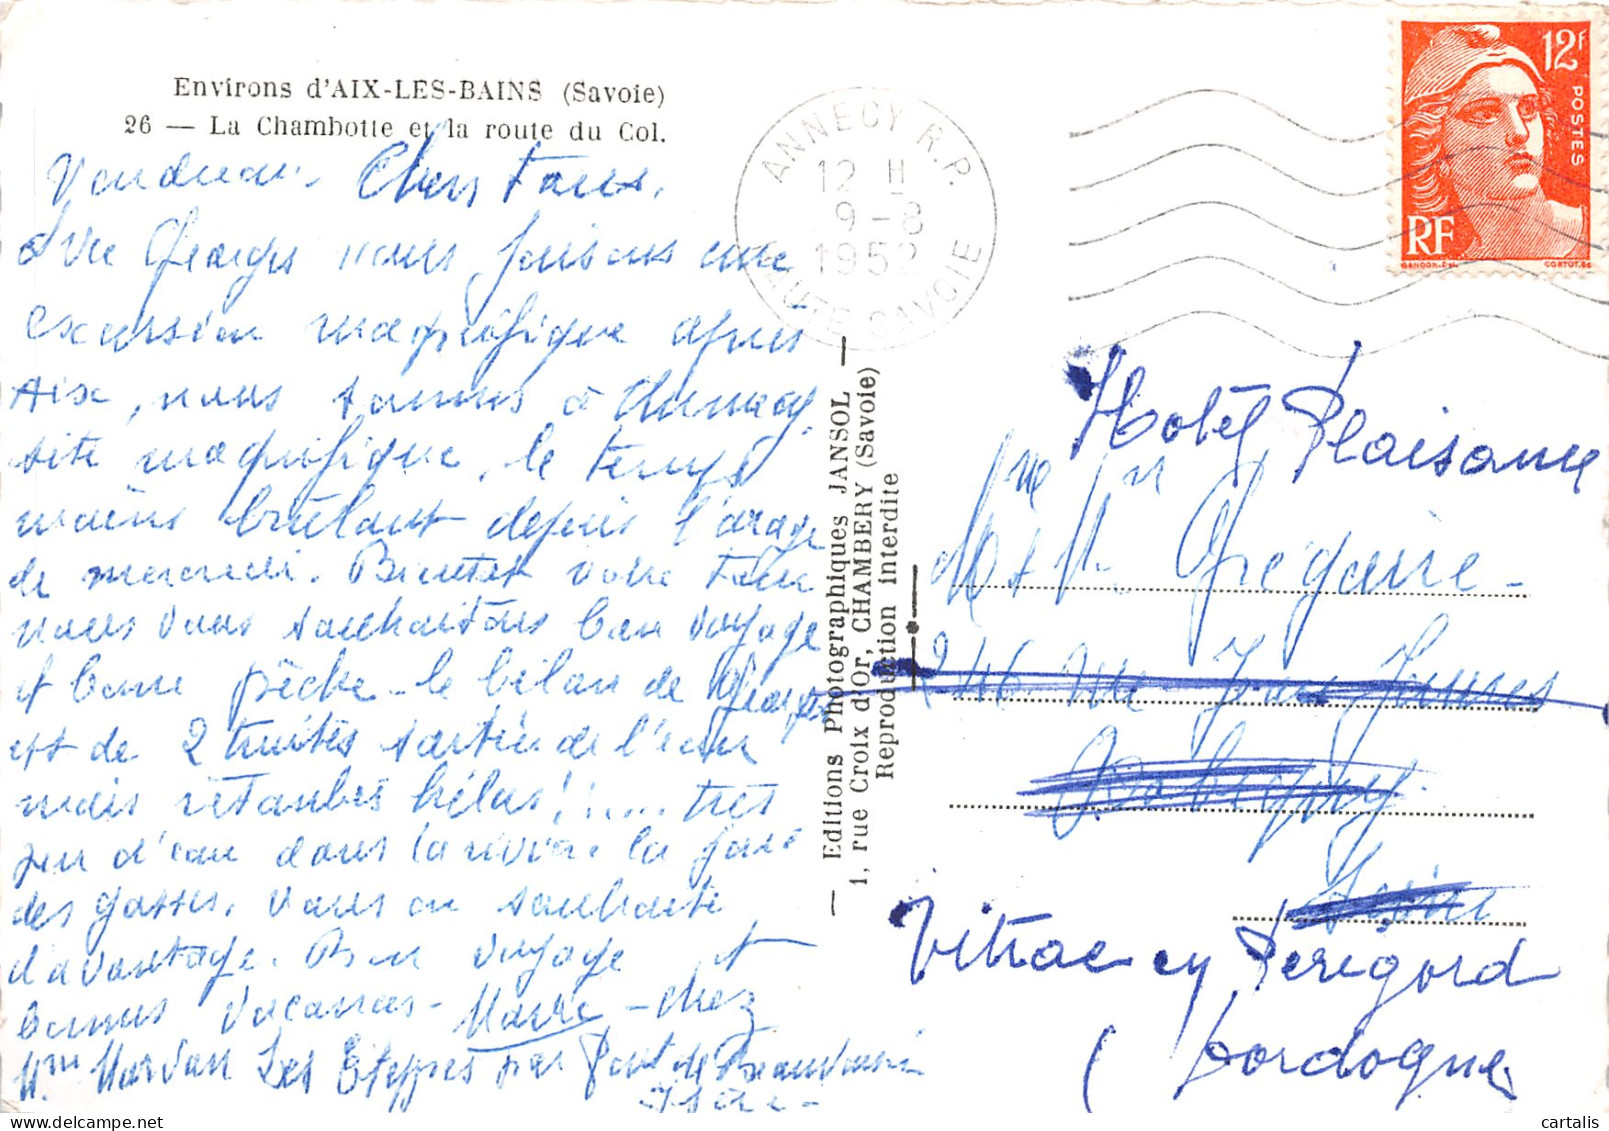 Environs d'AIX-LES-BAINS (Savoie)
26 — La Chambotte et la route du Col.
ANNECY R.P.
12 H
9-8
1952
HAUTE SAVOIE
12F
POSTES
RF
GANDON.DEL
CORTOT.SC
Vendredi. Chers Tous,
Avec Georges nous faisons une
excursion magnifique après
Aix, nous sommes à Annecy.
site magnifique, le temps
moins brûlant depuis l'orage
de mercredi. Bientôt votre tour
nous vous souhaitons bon voyage
et bonne pêche - le bilan de Georges
est de 2 truites sorties de l'eau
mais retombés hélas! !.... très
peu d'eau dans la rivière la
des gosses. Vous en souhaite
davantage. Bon voyage et
bonnes vacances - - chez
Mme Marvan Les Etappes par Pont de Beauvoisin
Isère -
— Editions Photographiques JANSOL —
1, rue Croix d'Or, CHAMBERY (Savoie)
Reproduction interdite
Hotel Plaisance
Mr & Mme Grégoire -
246 rue Jean Jaurès
Bobigny.
Seine
Vitrac en Périgord
(Dordogne
cartalis
cartalis.com